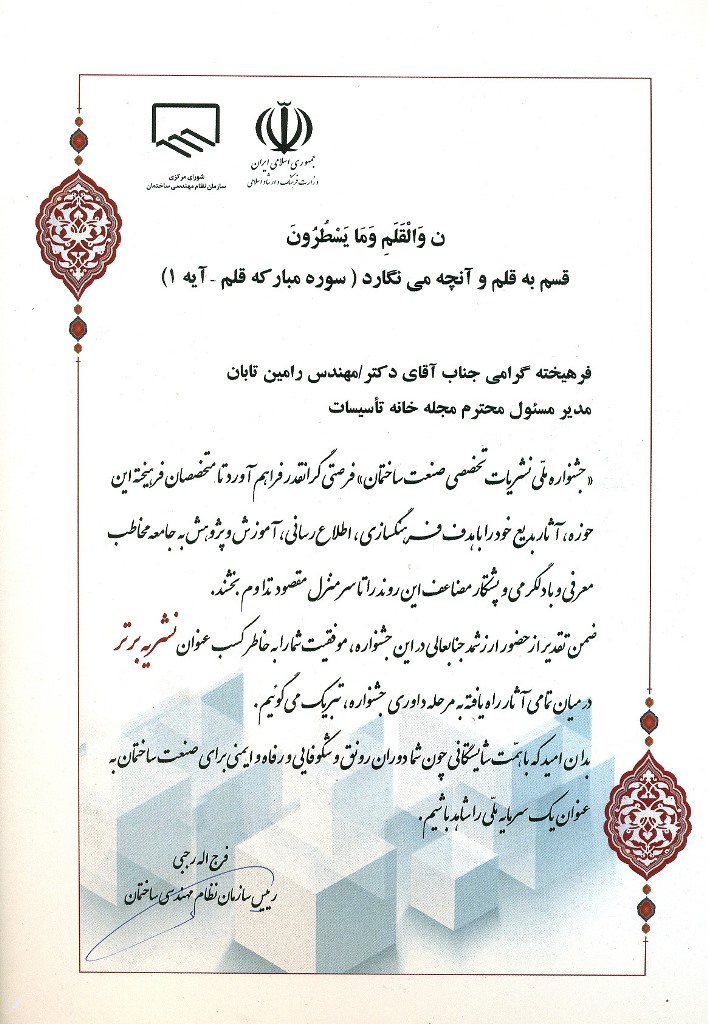 جمهوری اسلامی ایران
وزارت فرهنگ و ارشاد اسلامی
شورای مرکزی
سازمان نظام مهندسی ساختمان
ن وَالْقَلَمِ وَمَا يَسْطُرُونَ
قسم به قلم و آنچه می نگارد ( سوره مبارکه قلم - آیه ۱)
فرهیخته گرامی جناب آقای دکتر/مهندس رامین تابان
مدیر مسئول محترم مجله خانه تأسیسات
«جشنواره ملّی نشریات تخصّصی صنعت ساختمان» فرصتی گرانقدر فراهم آورد تا متخصصان فرهیخته این
حوزه، آثار بدیع خود را با هدف فرهنگسازی، اطلاع رسانی، آموزش و پژوهش به جامعه مخاطب
معرفی و با دلگرمی و پشتکار مضاعف این روند را تا سر منزل مقصود تداوم بخشند.
ضمن تقدیر از حضور ارزشمند جنابعالی در این جشنواره، موفقیت شما را به خاطر کسب عنوان نشریه برتر
در میان تمامی آثار راه یافته به مرحله داوری جشنواره، تبریک می گوئیم.
بدان امید که با همّت شایستگانی چون شما دوران رونق و شکوفایی و رفاه و ایمنی برای صنعت ساختمان به
عنوان یک سرمایه ملّی را شاهد باشیم.
فرج اله رجبی
رییس سازمان نظام مهندسی ساختمان